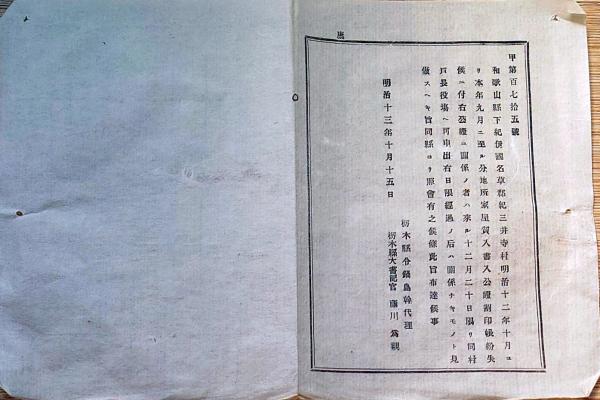 甲第百七拾五號
和歌山縣下紀伊國名草郡紀三井寺村明治十二年十月ヨ
リ本年九月ニ至ル分地所家屋質入書入公證割印帳紛失
候ニ付右公證ニ關係ノ者ハ來ル十二月二十日限リ同村
戸長役場ヘ可申出右日限經過ノ后ハ關係ナキモノト見
做スヘキ旨同縣ヨリ照會有之候條此旨布達候事
明治十三年十月十五日
栃木縣令鍋島幹代理
栃木縣大書記官 藤川爲親